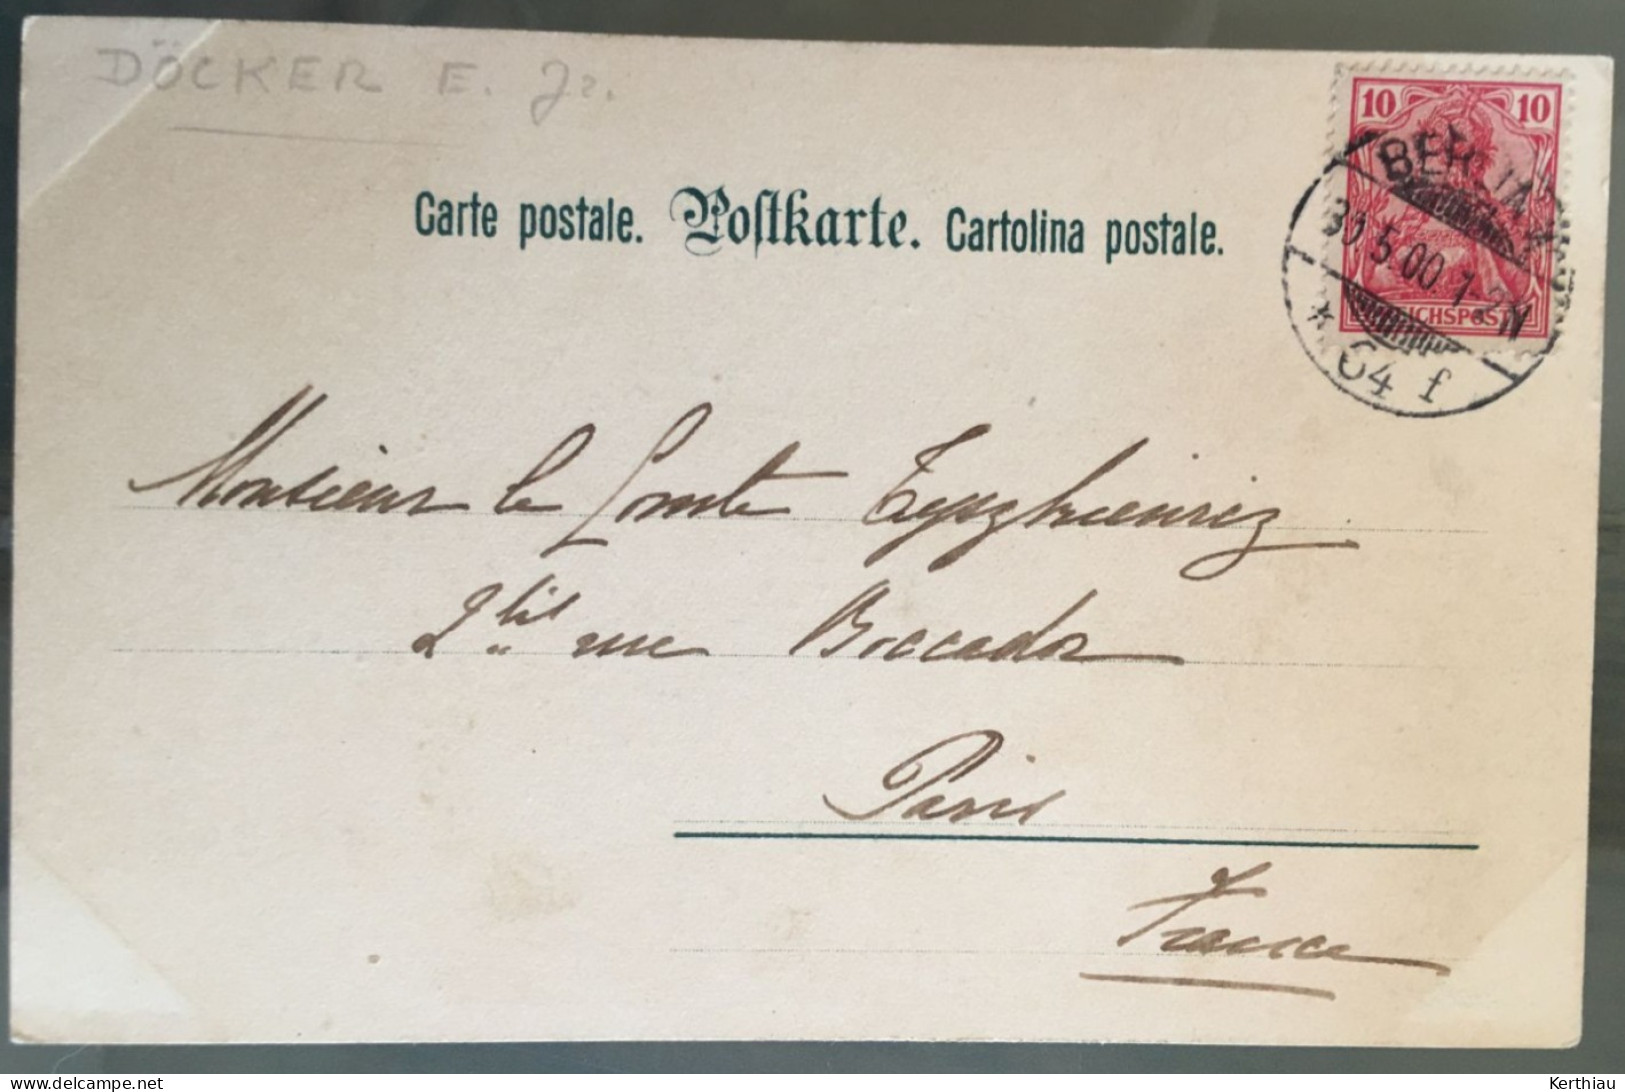 DÖCKER E. Jr.
10 10
Carte postale. Postkarte. Cartolina postale.
BERLIN
30.5.00.1-2N
REICHSPOST
* 64 f
Monsieur le Comte
2 bis rue Boccador
Paris
France
Kerthiau